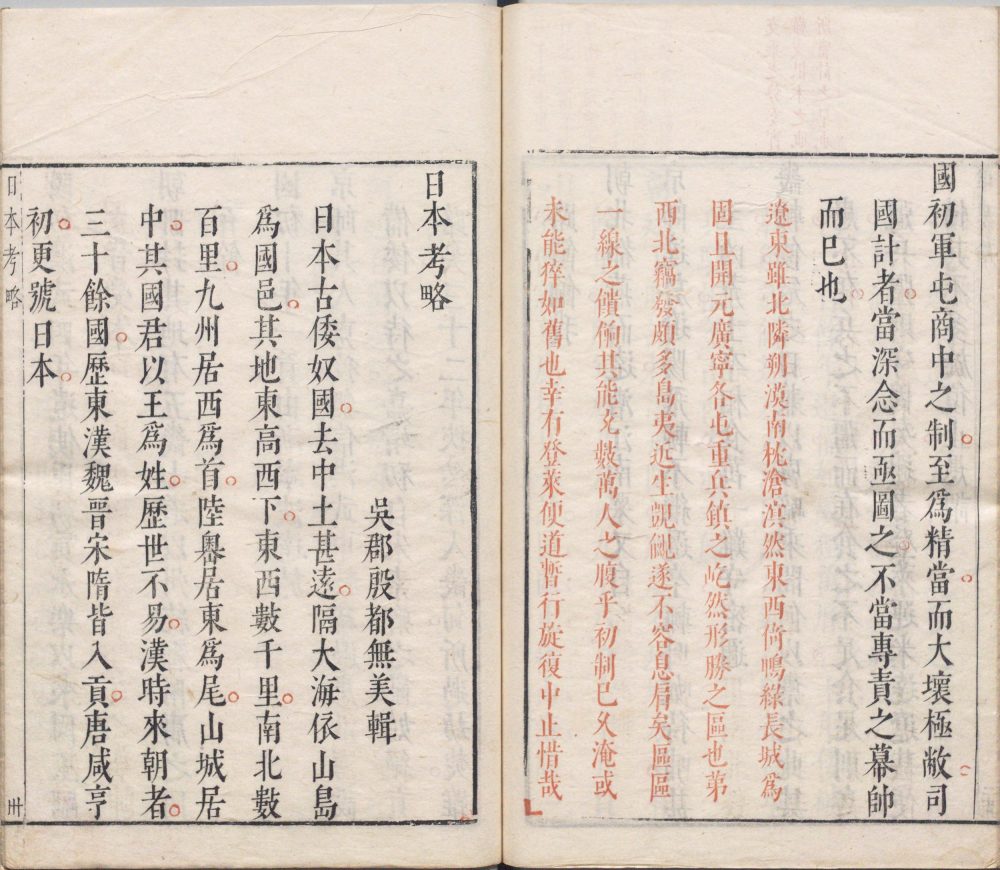 國初軍屯商中之制至爲精當而大壞極敝司
國計者當深念而亟圖之不當專責之幕帥
而已也
遼東雖北隣朔漠南桃滄溟然東西倚鴨綠長城爲
固且開元廣寧各屯重兵鎮之屹然形勝之區也第
西北竊發頗多島夷近生覬覦遂不容息肩矣區區
一線之饋餉其能充數萬人之腹乎初制已又淹或
未能猝如舊也幸有登萊便道暫行旋復中止惜哉
日本考略
吳郡殷都無美輯
日本古倭奴國去中土甚遠隔大海依山島
爲國邑其地東高西下東西數千里南北數
百里九州居西爲首陸奧居東爲尾山城居
中其國君以王爲姓歷世不易漢時來朝者
三十餘國歷東漢魏晉宋隋皆入貢唐咸亨
初更號日本
日本考略
卅